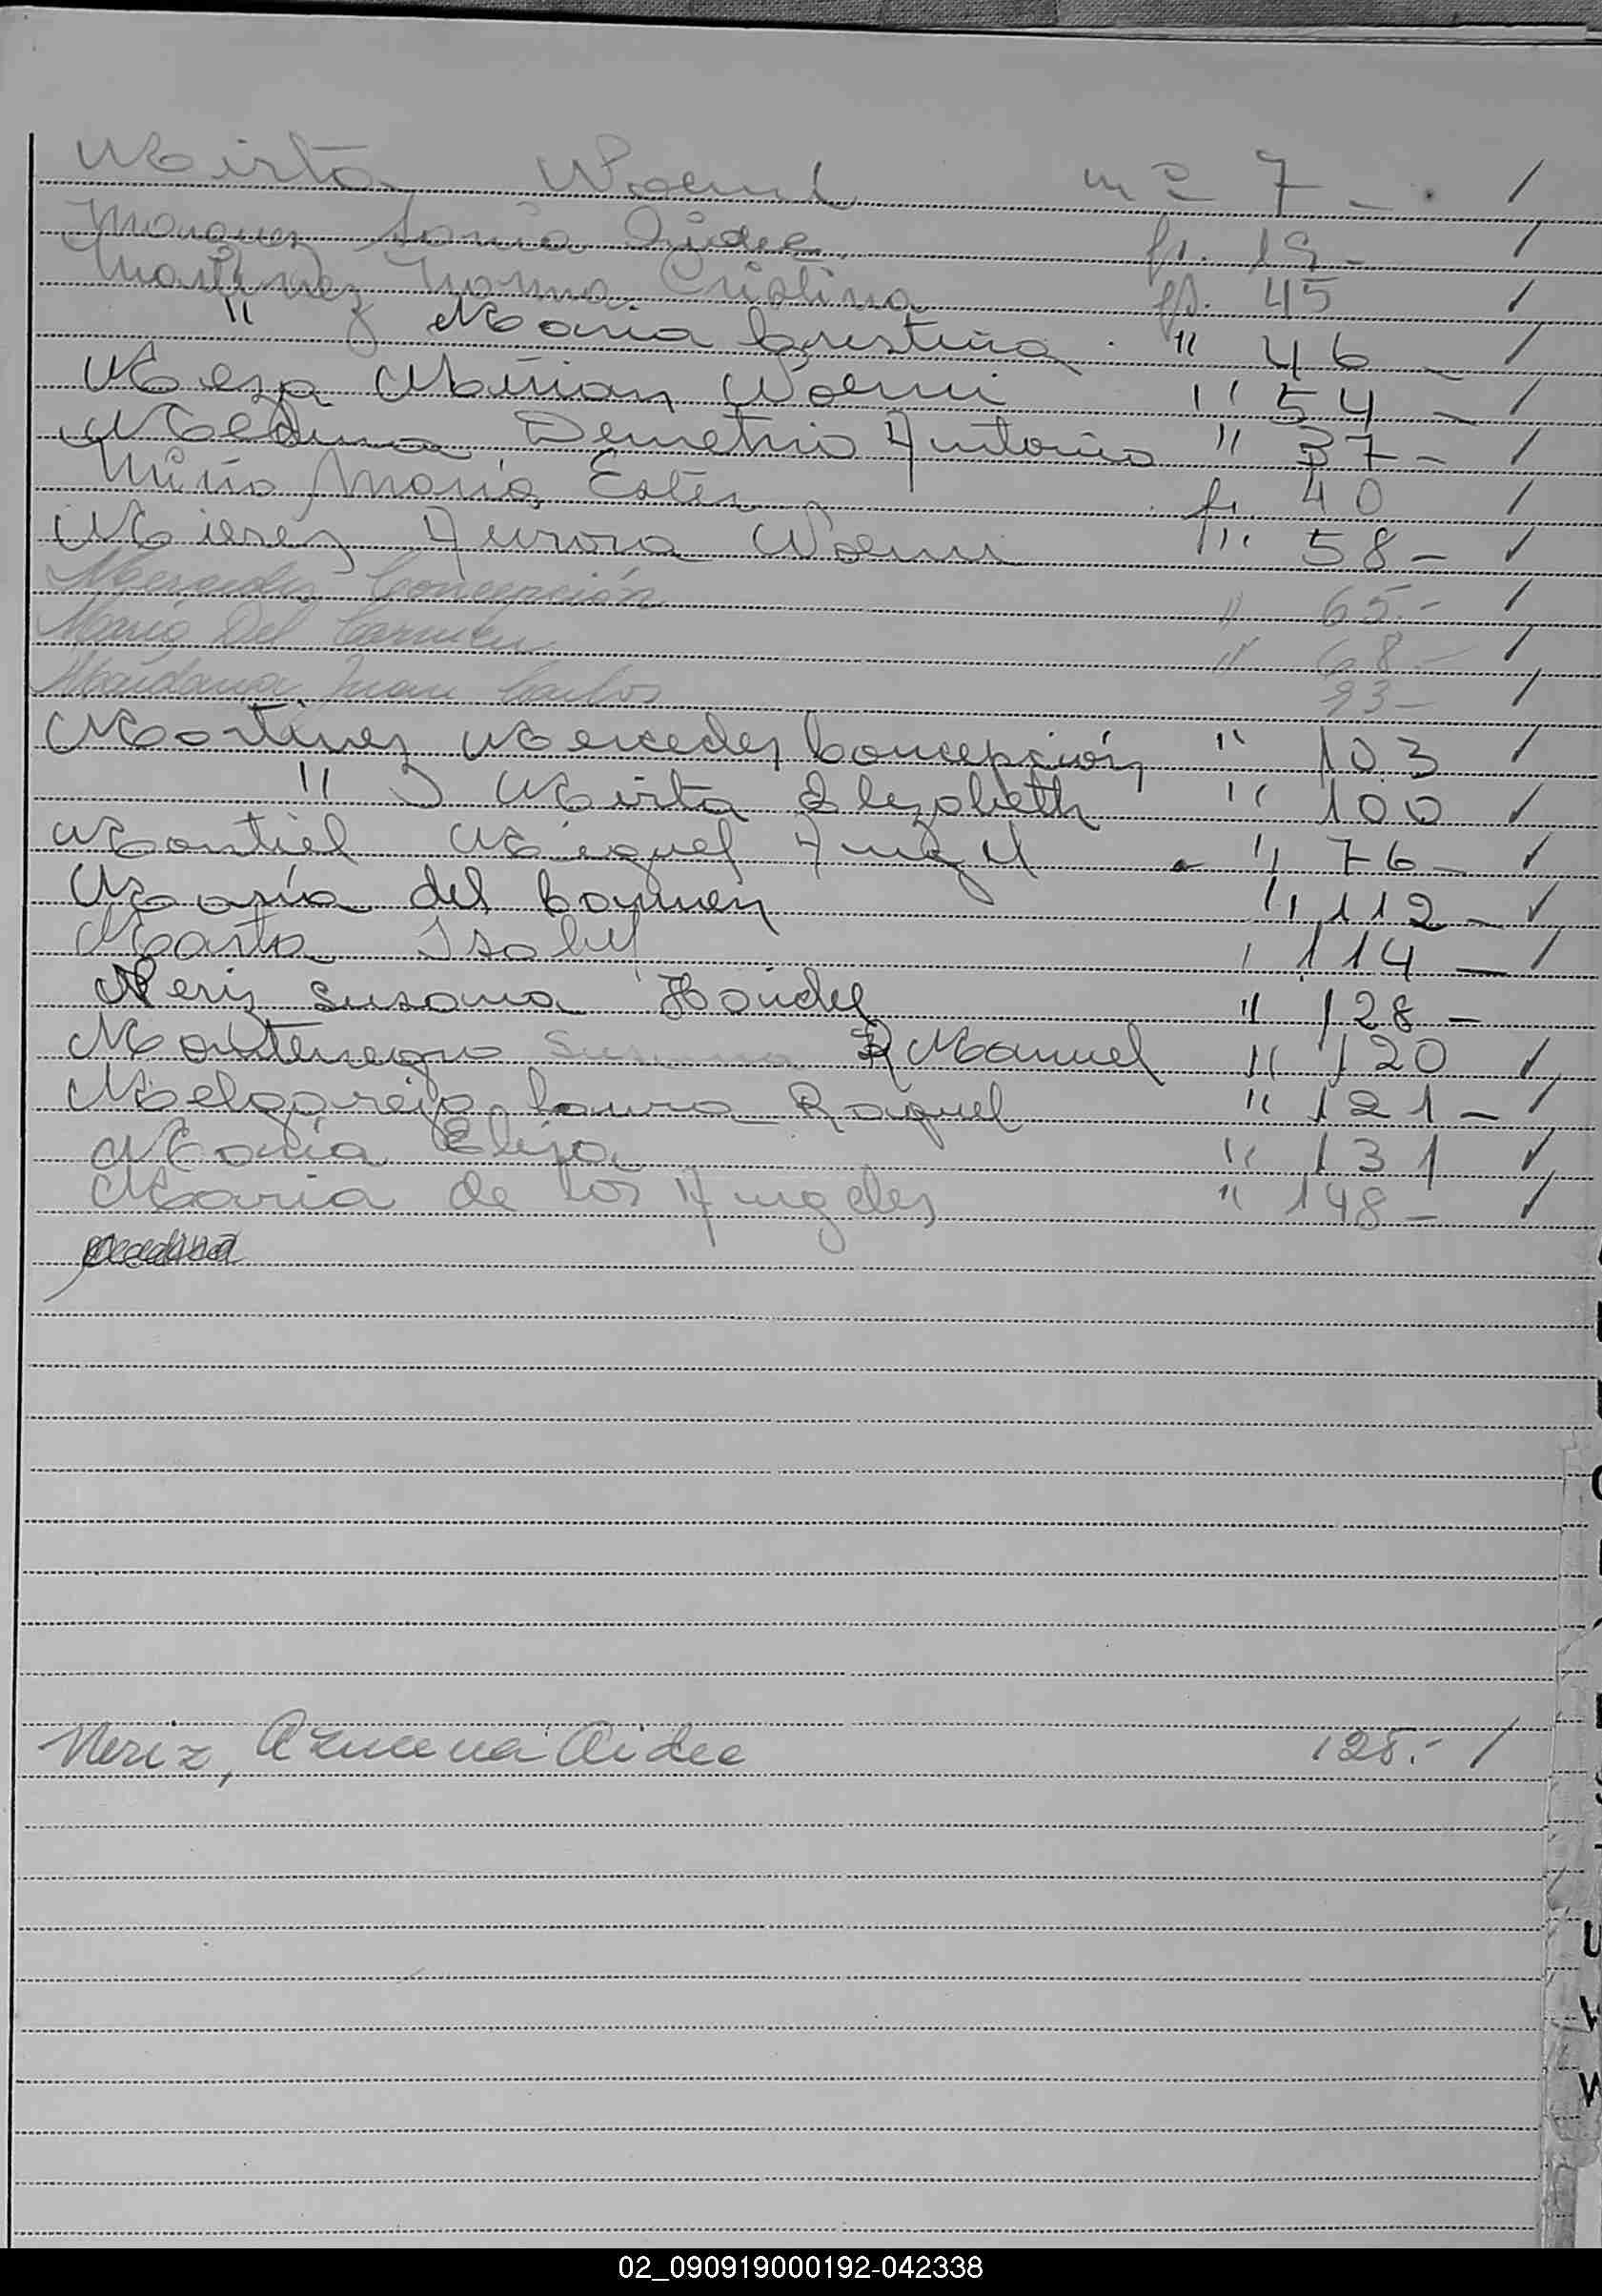 Mirta Noemi nº 7 -. /
Marquez Sonia Aidee fº. 19 - /
Martinez Norma Cristina fº. 45 /
" Maria Cristina . " 46 - /
Meza Mirian Noemi " 54 - /
Medina Demetrio Antonio " 37 - /
Miño María Ester fº 40 /
Mierez Aurora Noemi f". 58 - /
Mercedes Concepción " 65.- /
María Del Carmen " 68.- /
Maidana Juan Carlos 93 - /
Martinez Mercedes Concepción " 103 /
" Mirta Elizabeth " 100 /
Montiel Miguel Angel - " 76 - /
María del Carmen " 112 - /
Marta Isabel " 114 - /
Neriz Susana Haidee " 128 -
Montenegro Susana R Manuel " 120 /
Melgarejo Laura Raquel " 121 - /
María Elisa " 131 /
Maria de los Angeles " 148 - /
Neriz, Azucena Aidee 128.- /
U
V
W
02_090919000192-042338